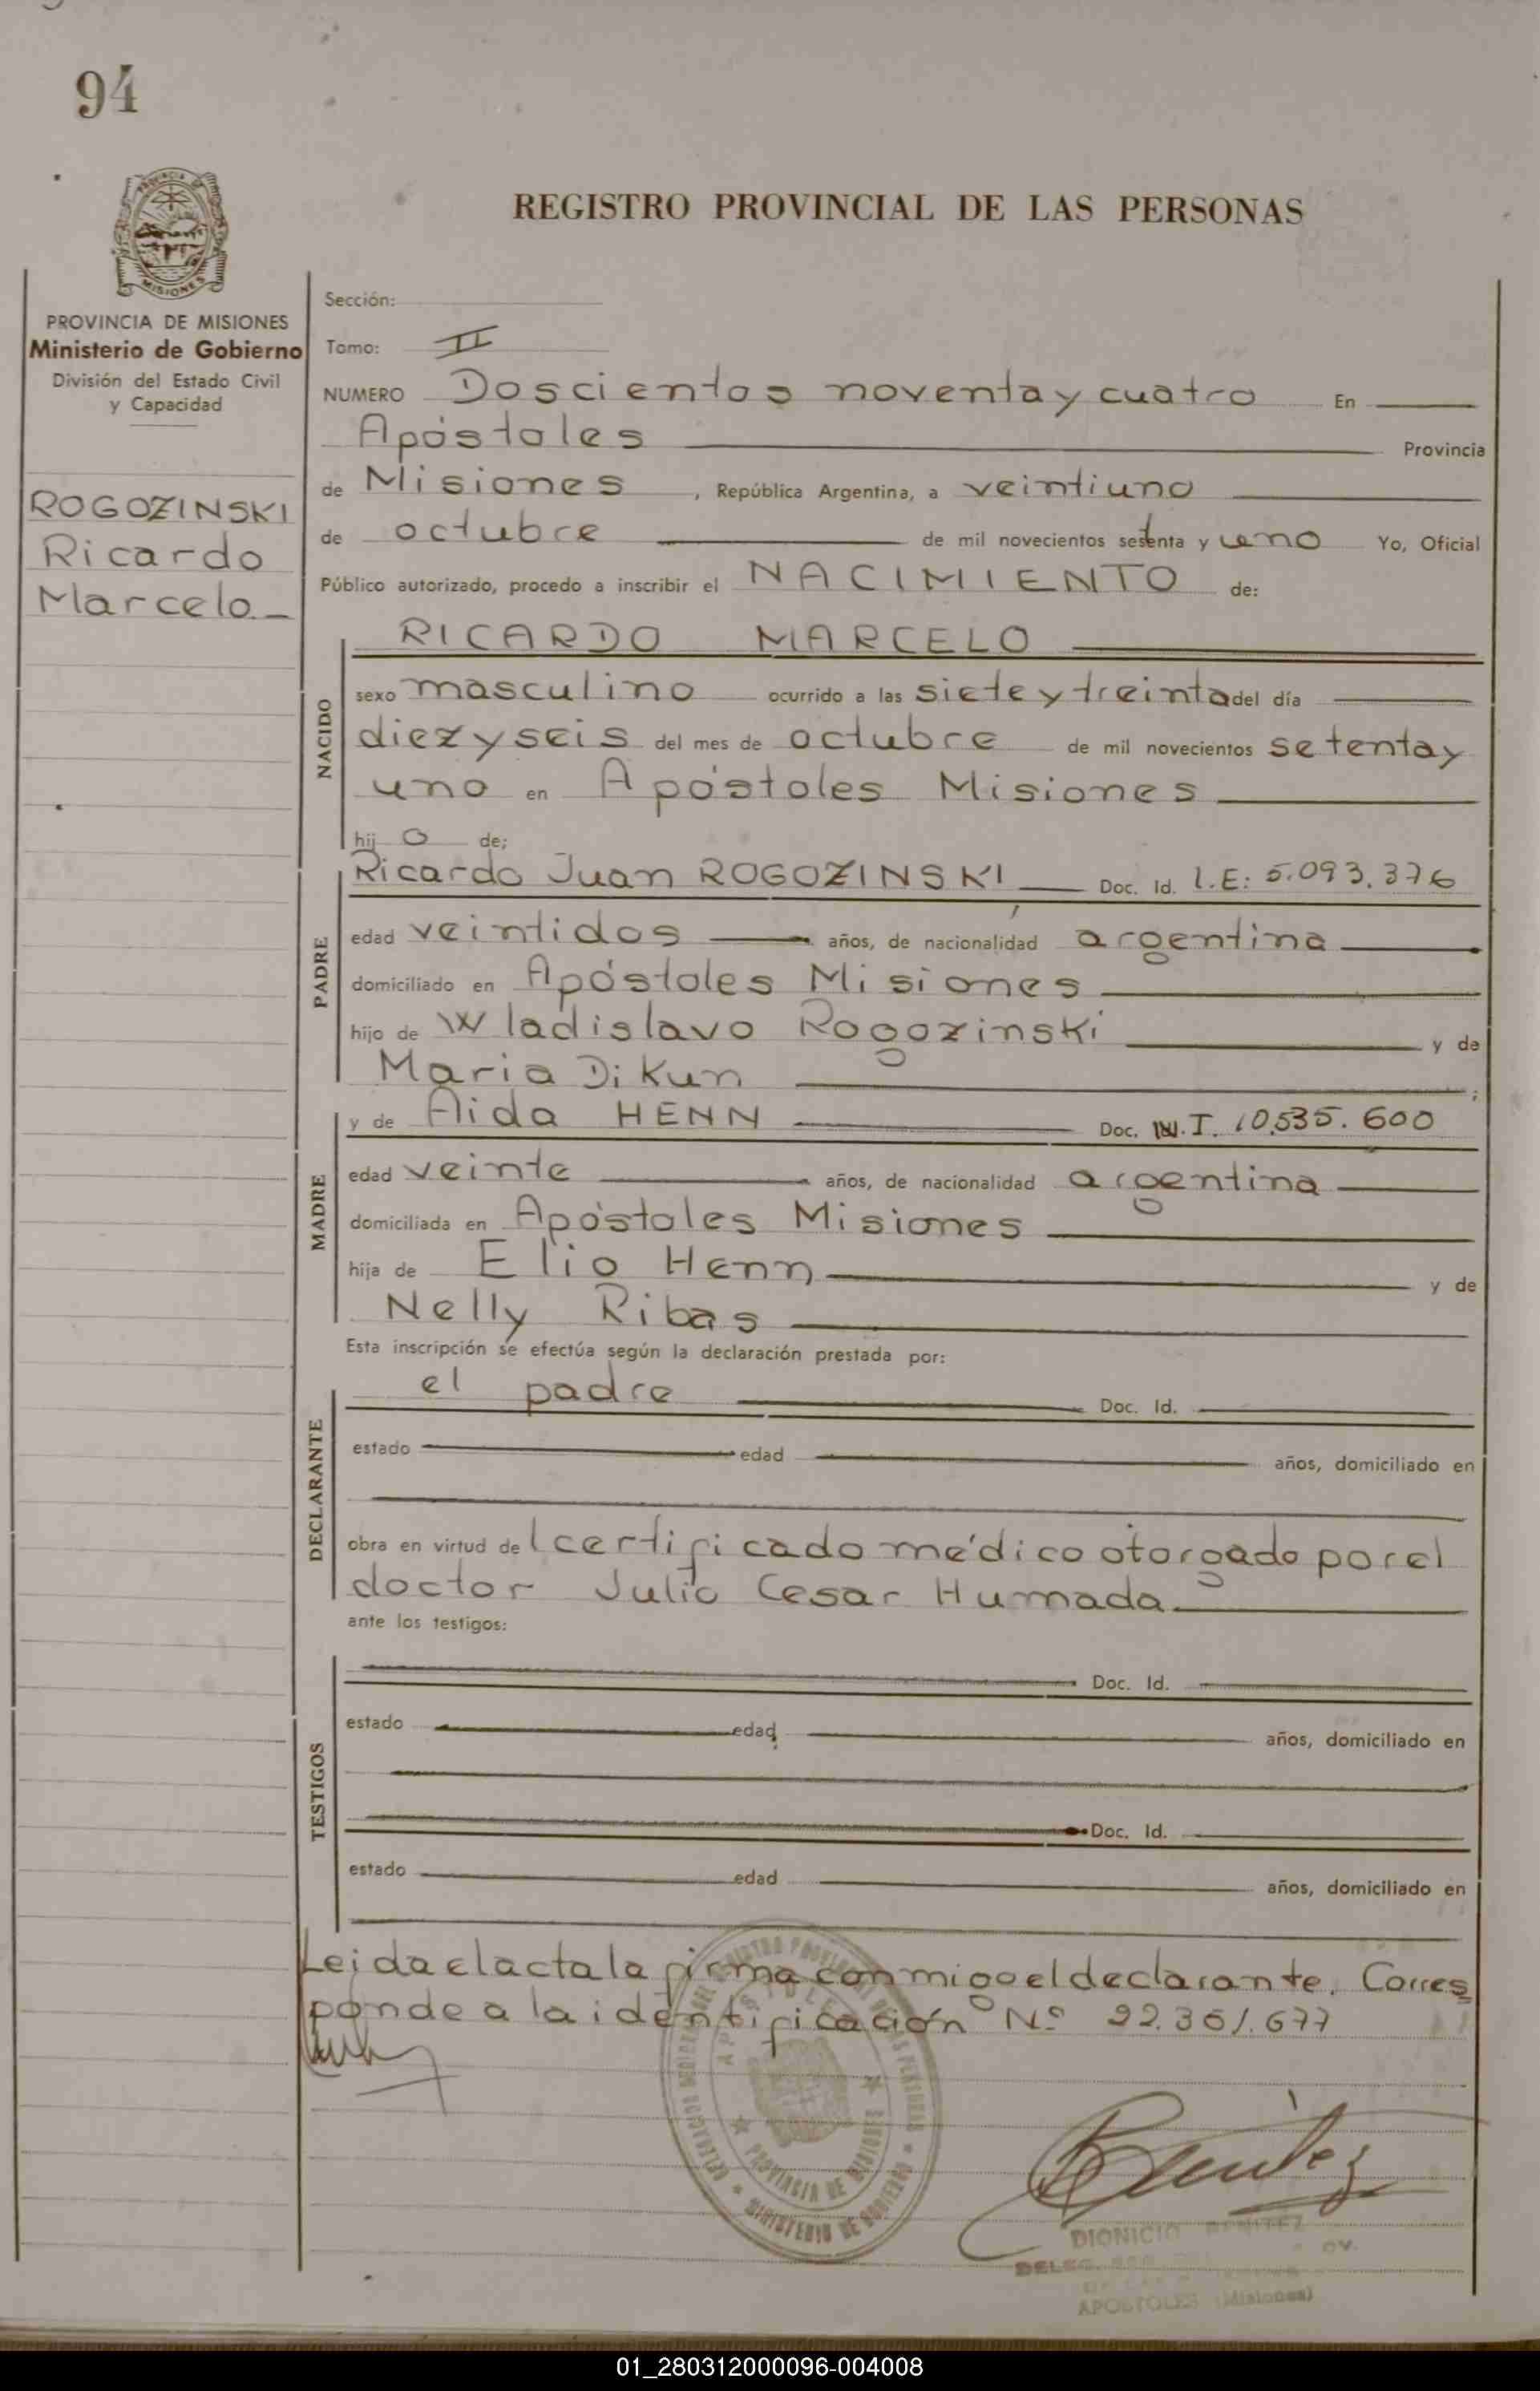 94
PROVINCIA
MISIONES
REGISTRO PROVINCIAL DE LAS PERSONAS
PROVINCIA DE MISIONES
Ministerio de Gobierno
División del Estado Civil
y Capacidad
ROGOZINSKI
Ricardo
Marcelo
Sección:
Tomo: II
NUMERO Doscientos noventa y cuatro En
Apóstoles Provincia
de Misiones, República Argentina, a veintiuno
de octubre de mil novecientos setenta y uno Yo, Oficial
Público autorizado, procedo a inscribir el NACIMIENTO de:
NACIDO
RICARDO MARCELO
sexo masculino ocurrido a las siete y treinta del día
diez y seis del mes de octubre de mil novecientos setenta y
uno en Apóstoles Misiones
hij o de;
PADRE
Ricardo Juan ROGOZINSKI Doc. Id. L.E: 5.093.376
edad veintidos años, de nacionalidad argentina
domiciliado en Apóstoles Misiones
hijo de Wladislavo Rogozinski y de
Maria Dikun ;
MADRE
y de Aida HENN Doc. I. 10.535.600
edad veinte años, de nacionalidad argentina
domiciliada en Apóstoles Misiones
hija de Elio Henn y de
Nelly Ribas
Esta inscripción se efectúa según la declaración prestada por:
DECLARANTE
el padre Doc. Id.
estado edad años, domiciliado en
obra en virtud del certificado médico otorgado por el
doctor Julio Cesar Humada
ante los testigos:
TESTIGOS
Doc. Id.
estado edad años, domiciliado en
Doc. Id.
estado edad años, domiciliado en
Leida el acta la firma conmigo el declarante. Corres
ponde a la identificación Nº 22.361.677
APOSTOLES
PROVINCIA DE MISIONES
MINISTERIO DE GOBIERNO
Benitez
DIONICIO BENITEZ
APOSTOLES (Misiones)
01_280312000096-004008